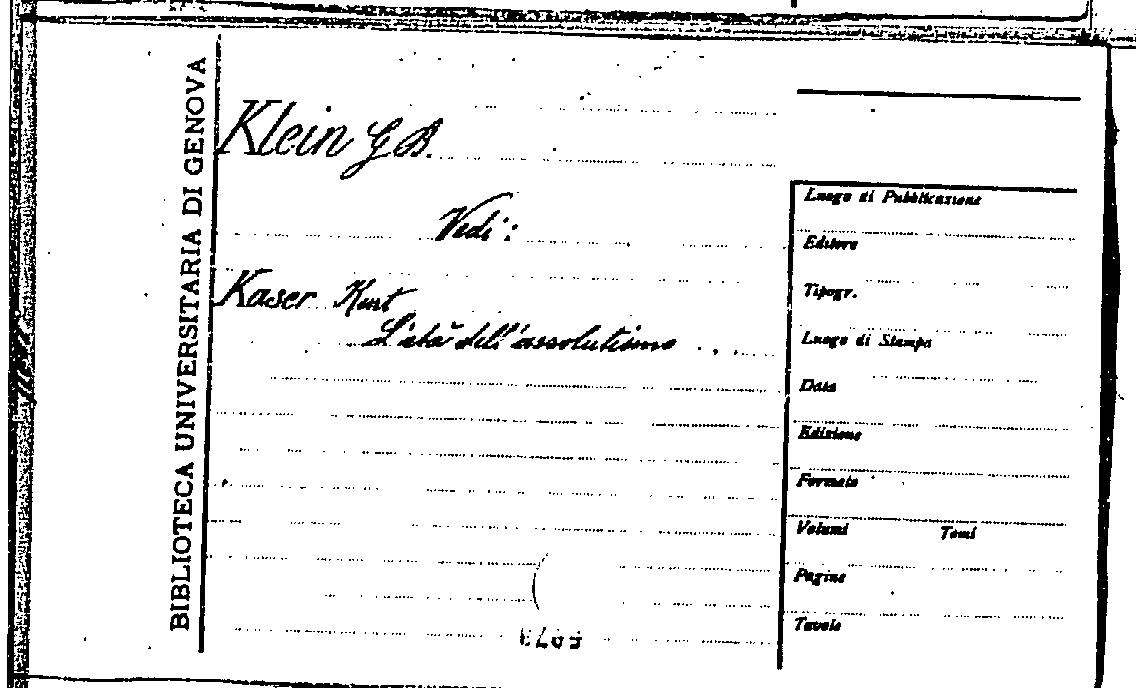 BIBLIOTECA UNIVERSITARIA DI GENOVA
Klein G. B.
Vedi:
Kaser Kurt
L'età dell'assolutismo
Luogo di Pubblicazione
Editore
Tipogr.
Luogo di Stampa
Data
Edizione
Formato
Volumi Tomi
Pagine
Tavole